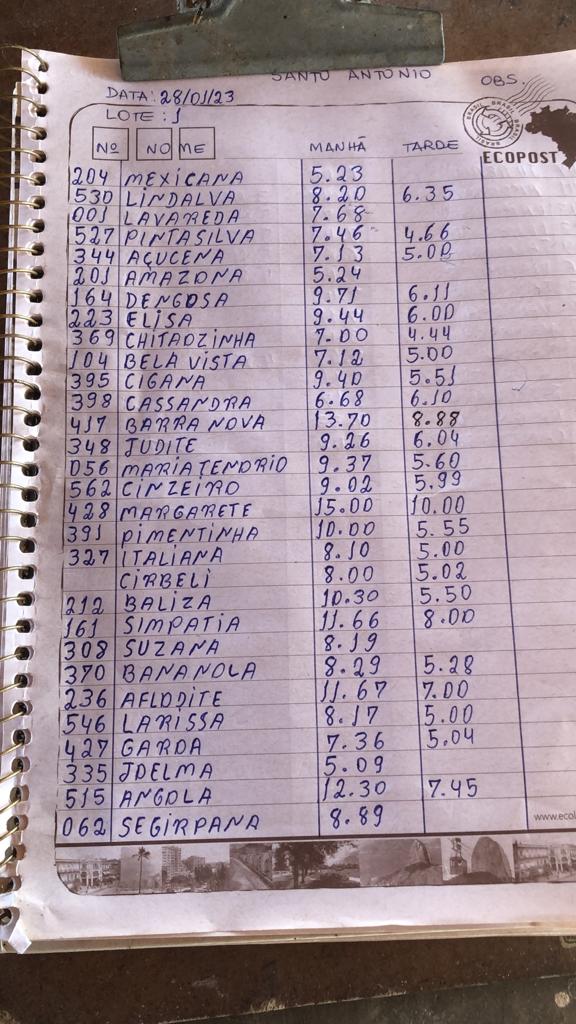 SANTO ANTONIO OBS.
DATA: 28/01/23
LOTE: 1
Nº NOME MANHÃ TARDE
BRASIL BRASIL BRASIL
ECOPOST
204 MEXICANA 5.23
530 LINDALVA 8.20 6.35
001 LAVAREDA 7.68
527 PINTASILVA 7.46 4.66
344 AÇUCENA 7.13 5.00
201 AMAZONA 5.24
164 DENGOSA 9.71 6.11
223 ELISA 9.44 6.00
369 CHITAOZINHA 7.00 4.44
104 BELA VISTA 7.12 5.00
395 CIGANA 9.40 5.51
398 CASSANDRA 6.68 6.10
417 BARRA NOVA 13.70 8.88
348 JUDITE 9.26 6.04
056 MARIA TENORIO 9.37 5.60
562 CINZEIRO 9.02 5.99
428 MARGARETE 15.00 10.00
391 PIMENTINHA 10.00 5.55
327 ITALIANA 8.10 5.00
CIRBELI 8.00 5.02
212 BALIZA 10.30 5.50
161 SIMPATIA 11.66 8.00
308 SUZANA 8.19
370 BANANOLA 8.29 5.28
236 AFLODITE 11.67 7.00
546 LARISSA 8.17 5.00
427 GAROA 7.36 5.04
335 JOELMA 5.09
515 ANGOLA 12.30 7.45
062 SEGIRPANA 8.89
www.ecol